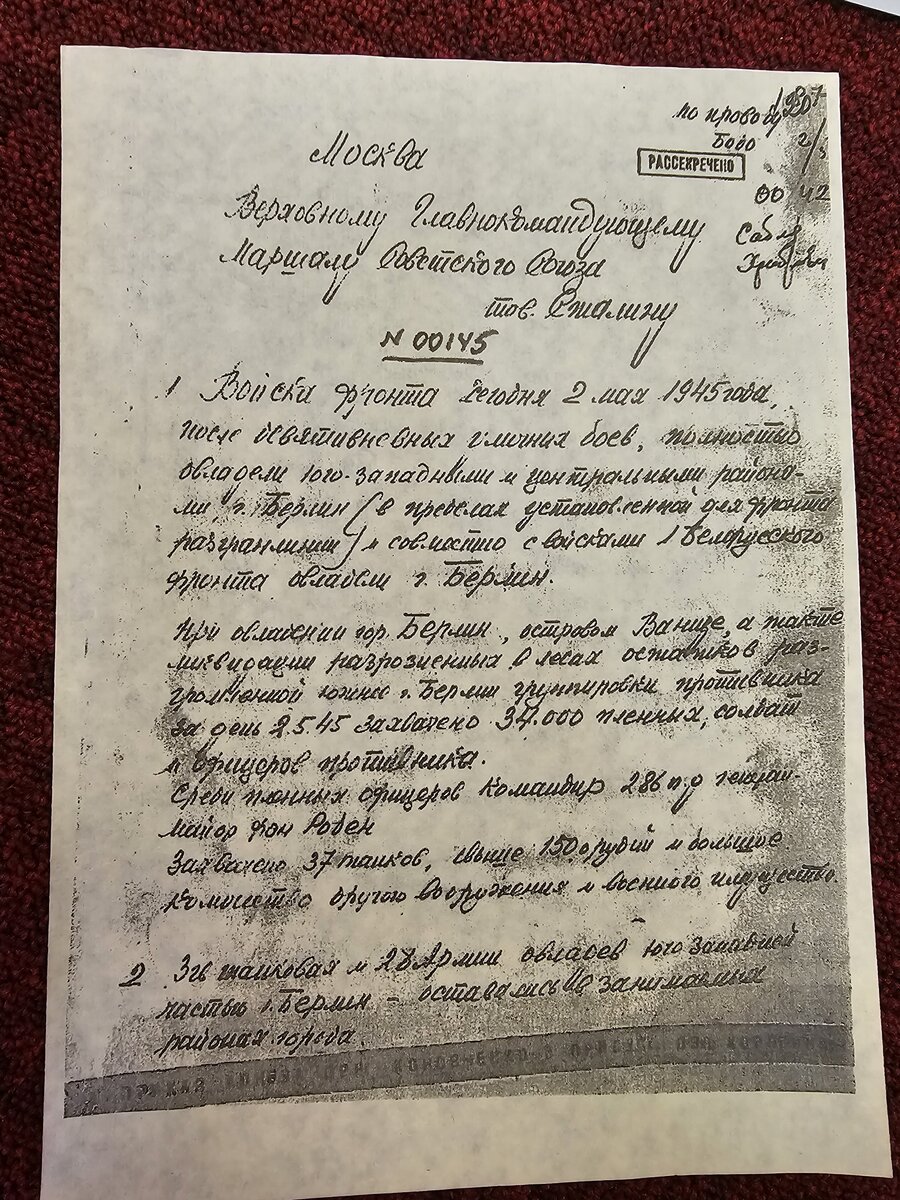 по проводу
Бодо
РАССЕКРЕЧЕНО
Москва
Верховному Главнокомандующему
Маршалу Советского Союза
тов. Сталину
N 00145
1 Войска фронта сегодня 2 мая 1945 года,
после девятидневных уличных боев, полностью
овладели юго-западными и центральными района-
ми г. Берлин (в пределах установленной для фронта
разгранлинии) и совместно с войсками 1 Белорусского
фронта овладели г. Берлин.
При овладении гор. Берлин, островом Ванзее, а также
ликвидации разрозненных в лесах остатков раз-
громленной южнее г. Берлин группировки противника
за день 2.5.45 захвачено 34.000 пленных, солдат
и офицеров противника.
Среди пленных офицеров командир 286 п.д генерал-
майор фон Роден
Захвачено 37 танков, свыше 150 орудий и большое
количество другого вооружения и военного имущества.
2 3 гв танковая и 28 Армии овладев юго западной
частью г. Берлин - оставались в занимаемых
районах города.